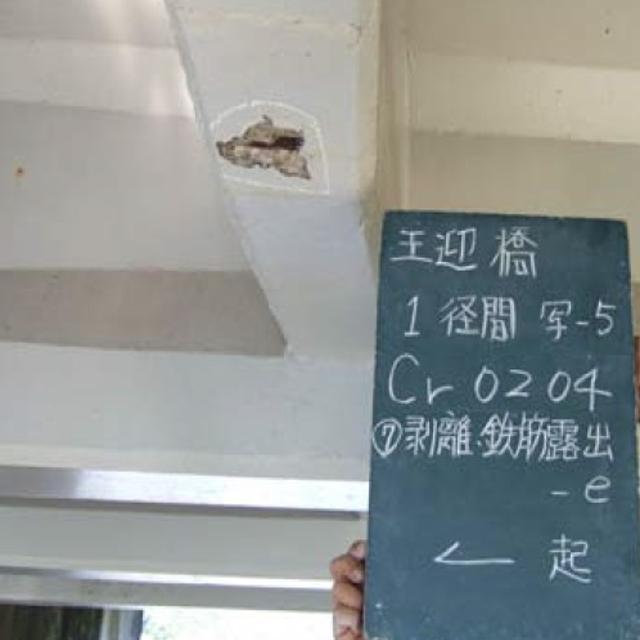 王迎橋
1径間 写-5
Cr 0204
⑦剥離・鉄筋露出
-e
← 起